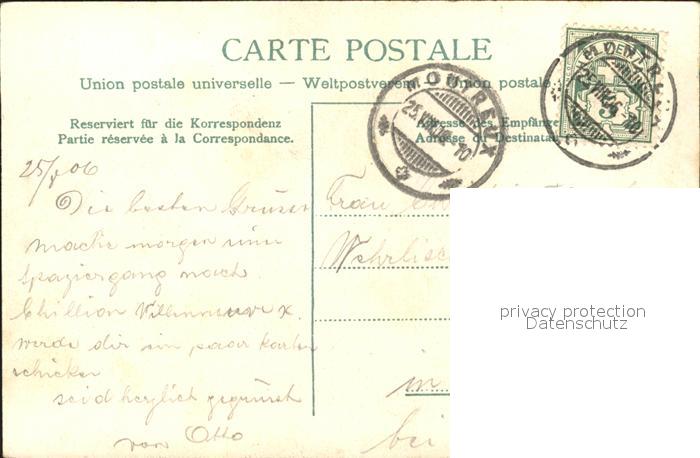 CARTE POSTALE
Union postale universelle — Weltpostverein — Union postale
Reserviert für die Korrespondenz
Partie réservée à la Correspondance.
Adresse des Empfänge
Adresse du Destinatai
MOUTREUX
25
10
5
25/V 06
Die besten Grüsse
mache morgen einen
Spaziergang nach
Chillion Villennueve x.
werde dir ein paar Karten
schicken
seid herzlich gegrüsst
von Otto
Frau
Wehrlisc
in
bei
privacy protection
Datenschutz